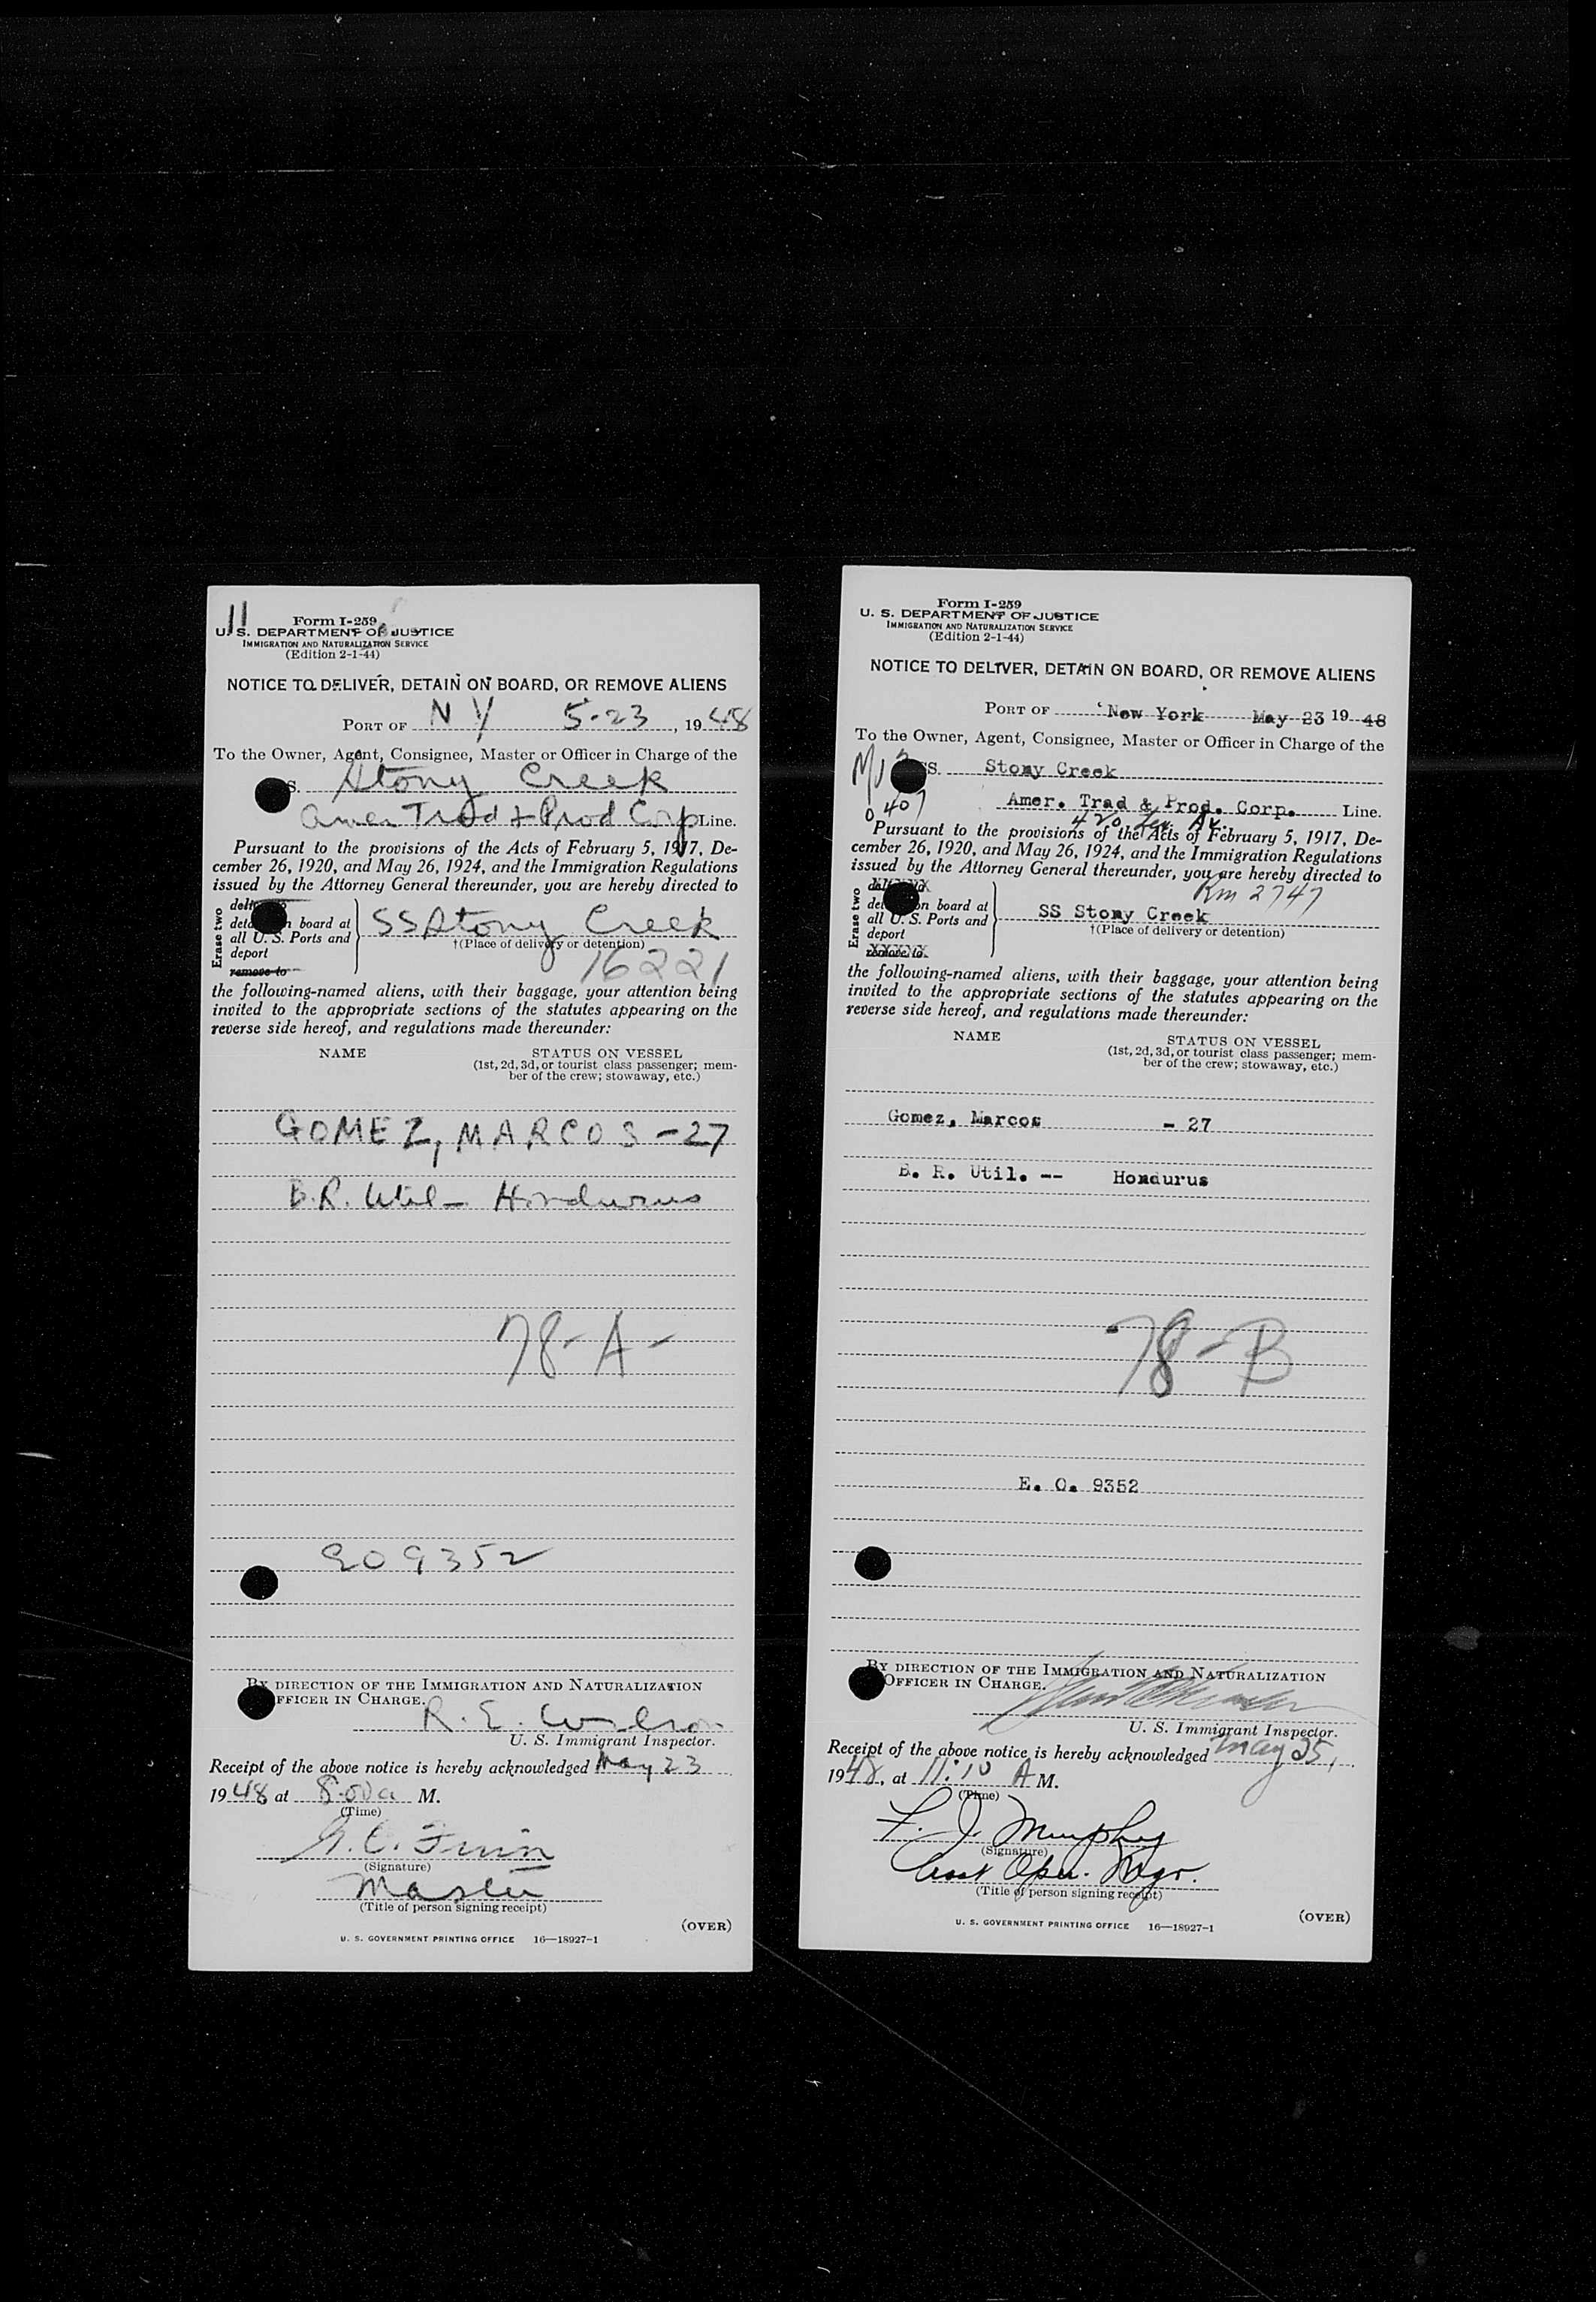 11
Form I-259
U. S. DEPARTMENT OF JUSTICE
IMMIGRATION AND NATURALIZATION SERVICE
(Edition 2-1-44)
NOTICE TO DELIVER, DETAIN ON BOARD, OR REMOVE ALIENS
PORT OF N Y 5-23, 1948
To the Owner, Agent, Consignee, Master or Officer in Charge of the
S. Stony Creek
Amer Trad & Prod Corp Line.
Pursuant to the provisions of the Acts of February 5, 1917, De-
cember 26, 1920, and May 26, 1924, and the Immigration Regulations
issued by the Attorney General thereunder, you are hereby directed to
Erase two
deliver to
detain on board at
all U. S. Ports and
deport
remove to
SS Stony Creek
†(Place of delivery or detention)
16221
the following-named aliens, with their baggage, your attention being
invited to the appropriate sections of the statutes appearing on the
reverse side hereof, and regulations made thereunder:
NAME STATUS ON VESSEL
(1st, 2d, 3d, or tourist class passenger; mem-
ber of the crew; stowaway, etc.)
GOMEZ, MARCOS - 27
B.R. Util - Hondurus
78-A-
EO 9352
BY DIRECTION OF THE IMMIGRATION AND NATURALIZATION
OFFICER IN CHARGE.
R. E. Wilson
U. S. Immigrant Inspector.
Receipt of the above notice is hereby acknowledged May 23
1948, at 8:00 a M.
(Time)
(Signature)
Master
(Title of person signing receipt)
(OVER)
U. S. GOVERNMENT PRINTING OFFICE 16—18927-1
Form I-259
U. S. DEPARTMENT OF JUSTICE
IMMIGRATION AND NATURALIZATION SERVICE
(Edition 2-1-44)
NOTICE TO DELIVER, DETAIN ON BOARD, OR REMOVE ALIENS
PORT OF New York May 23 1948
To the Owner, Agent, Consignee, Master or Officer in Charge of the
SS. Stony Creek
0407
Amer. Trad & Prod. Corp. Line.
420 Lex Av.
Pursuant to the provisions of the Acts of February 5, 1917, De-
cember 26, 1920, and May 26, 1924, and the Immigration Regulations
issued by the Attorney General thereunder, you are hereby directed to
Rm 2747
Erase two
deliver to
detain on board at
all U. S. Ports and
deport
remove to
SS Stony Creek
†(Place of delivery or detention)
the following-named aliens, with their baggage, your attention being
invited to the appropriate sections of the statutes appearing on the
reverse side hereof, and regulations made thereunder:
NAME STATUS ON VESSEL
(1st, 2d, 3d, or tourist class passenger; mem-
ber of the crew; stowaway, etc.)
Gomez, Marcos - 27
B. R. Util. -- Hondurus
78-B
E. O. 9352
BY DIRECTION OF THE IMMIGRATION AND NATURALIZATION
OFFICER IN CHARGE.
U. S. Immigrant Inspector.
Receipt of the above notice is hereby acknowledged May 25,
1948, at 11:10 A M.
(Time)
F. J. Murphy
(Signature)
Asst Oper. Mgr.
(Title of person signing receipt)
(OVER)
U. S. GOVERNMENT PRINTING OFFICE 16—18927-1